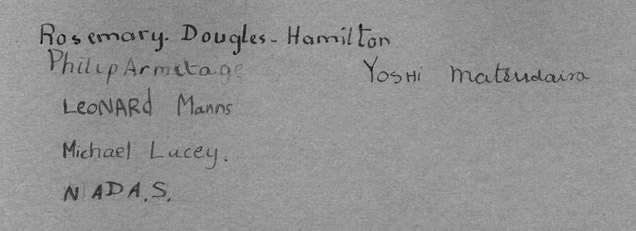 Rosemary. Dougles-Hamilton
Philip Armitage Yoshi Matsudaira
Leonard Manns
Michael Lucey.
NADA.S.